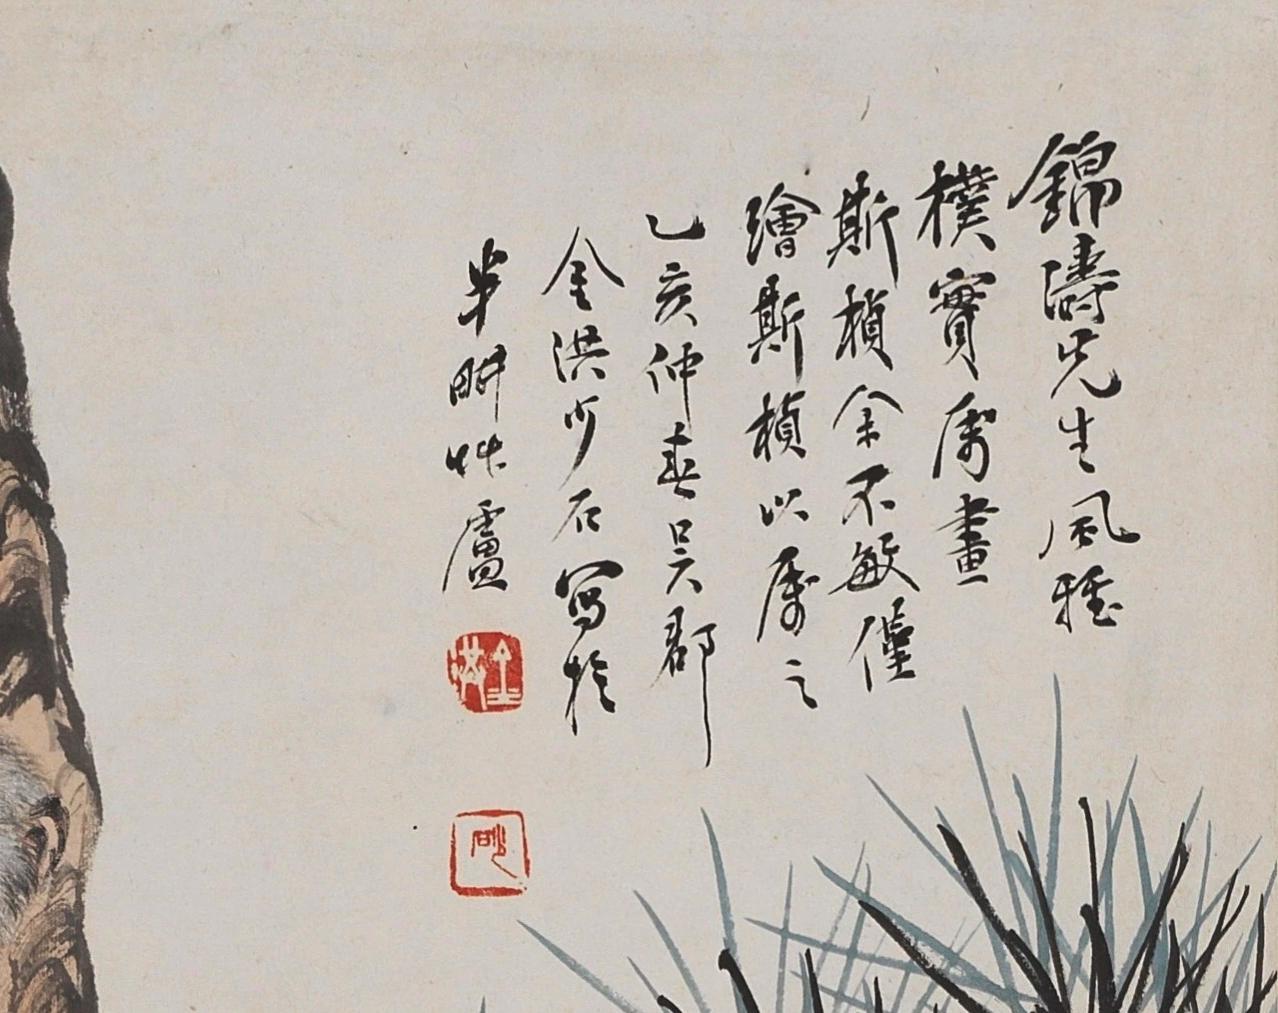 錦濤先生風雅
樸實屬畫
斯楨余不敏僅
繪斯楨以應之
乙亥仲春吳郡
金洪少石寫於
半畊草廬
金洪